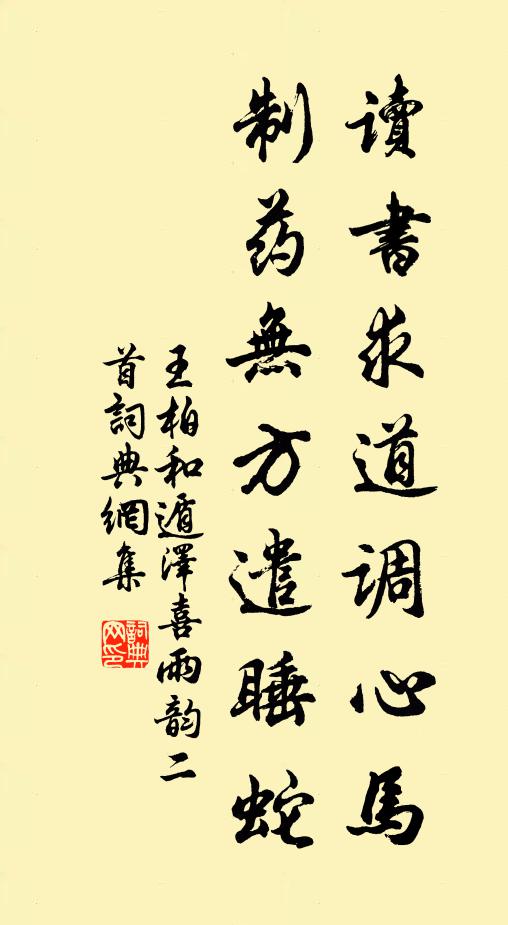 读書求道调心馬
制药無方遣睡蛇
王柏和遁澤喜雨韵二
首詞典網集
詞典网印